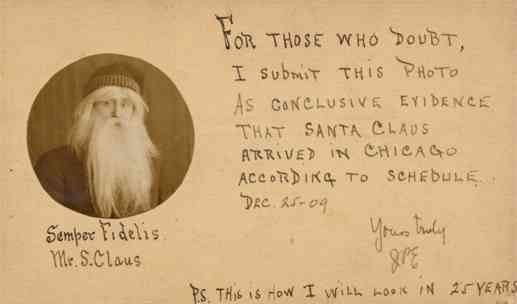 FOR THOSE WHO DOUBT,
I SUBMIT THIS PHOTO
AS CONCLUSIVE EVIDENCE
THAT SANTA CLAUS
ARRIVED IN CHICAGO
ACCORDING TO SCHEDULE.
DEC. 25-09
Yours truly
JPE
Semper Fidelis
Mr. S. Claus
P.S. THIS IS HOW I WILL LOOK IN 25 YEARS